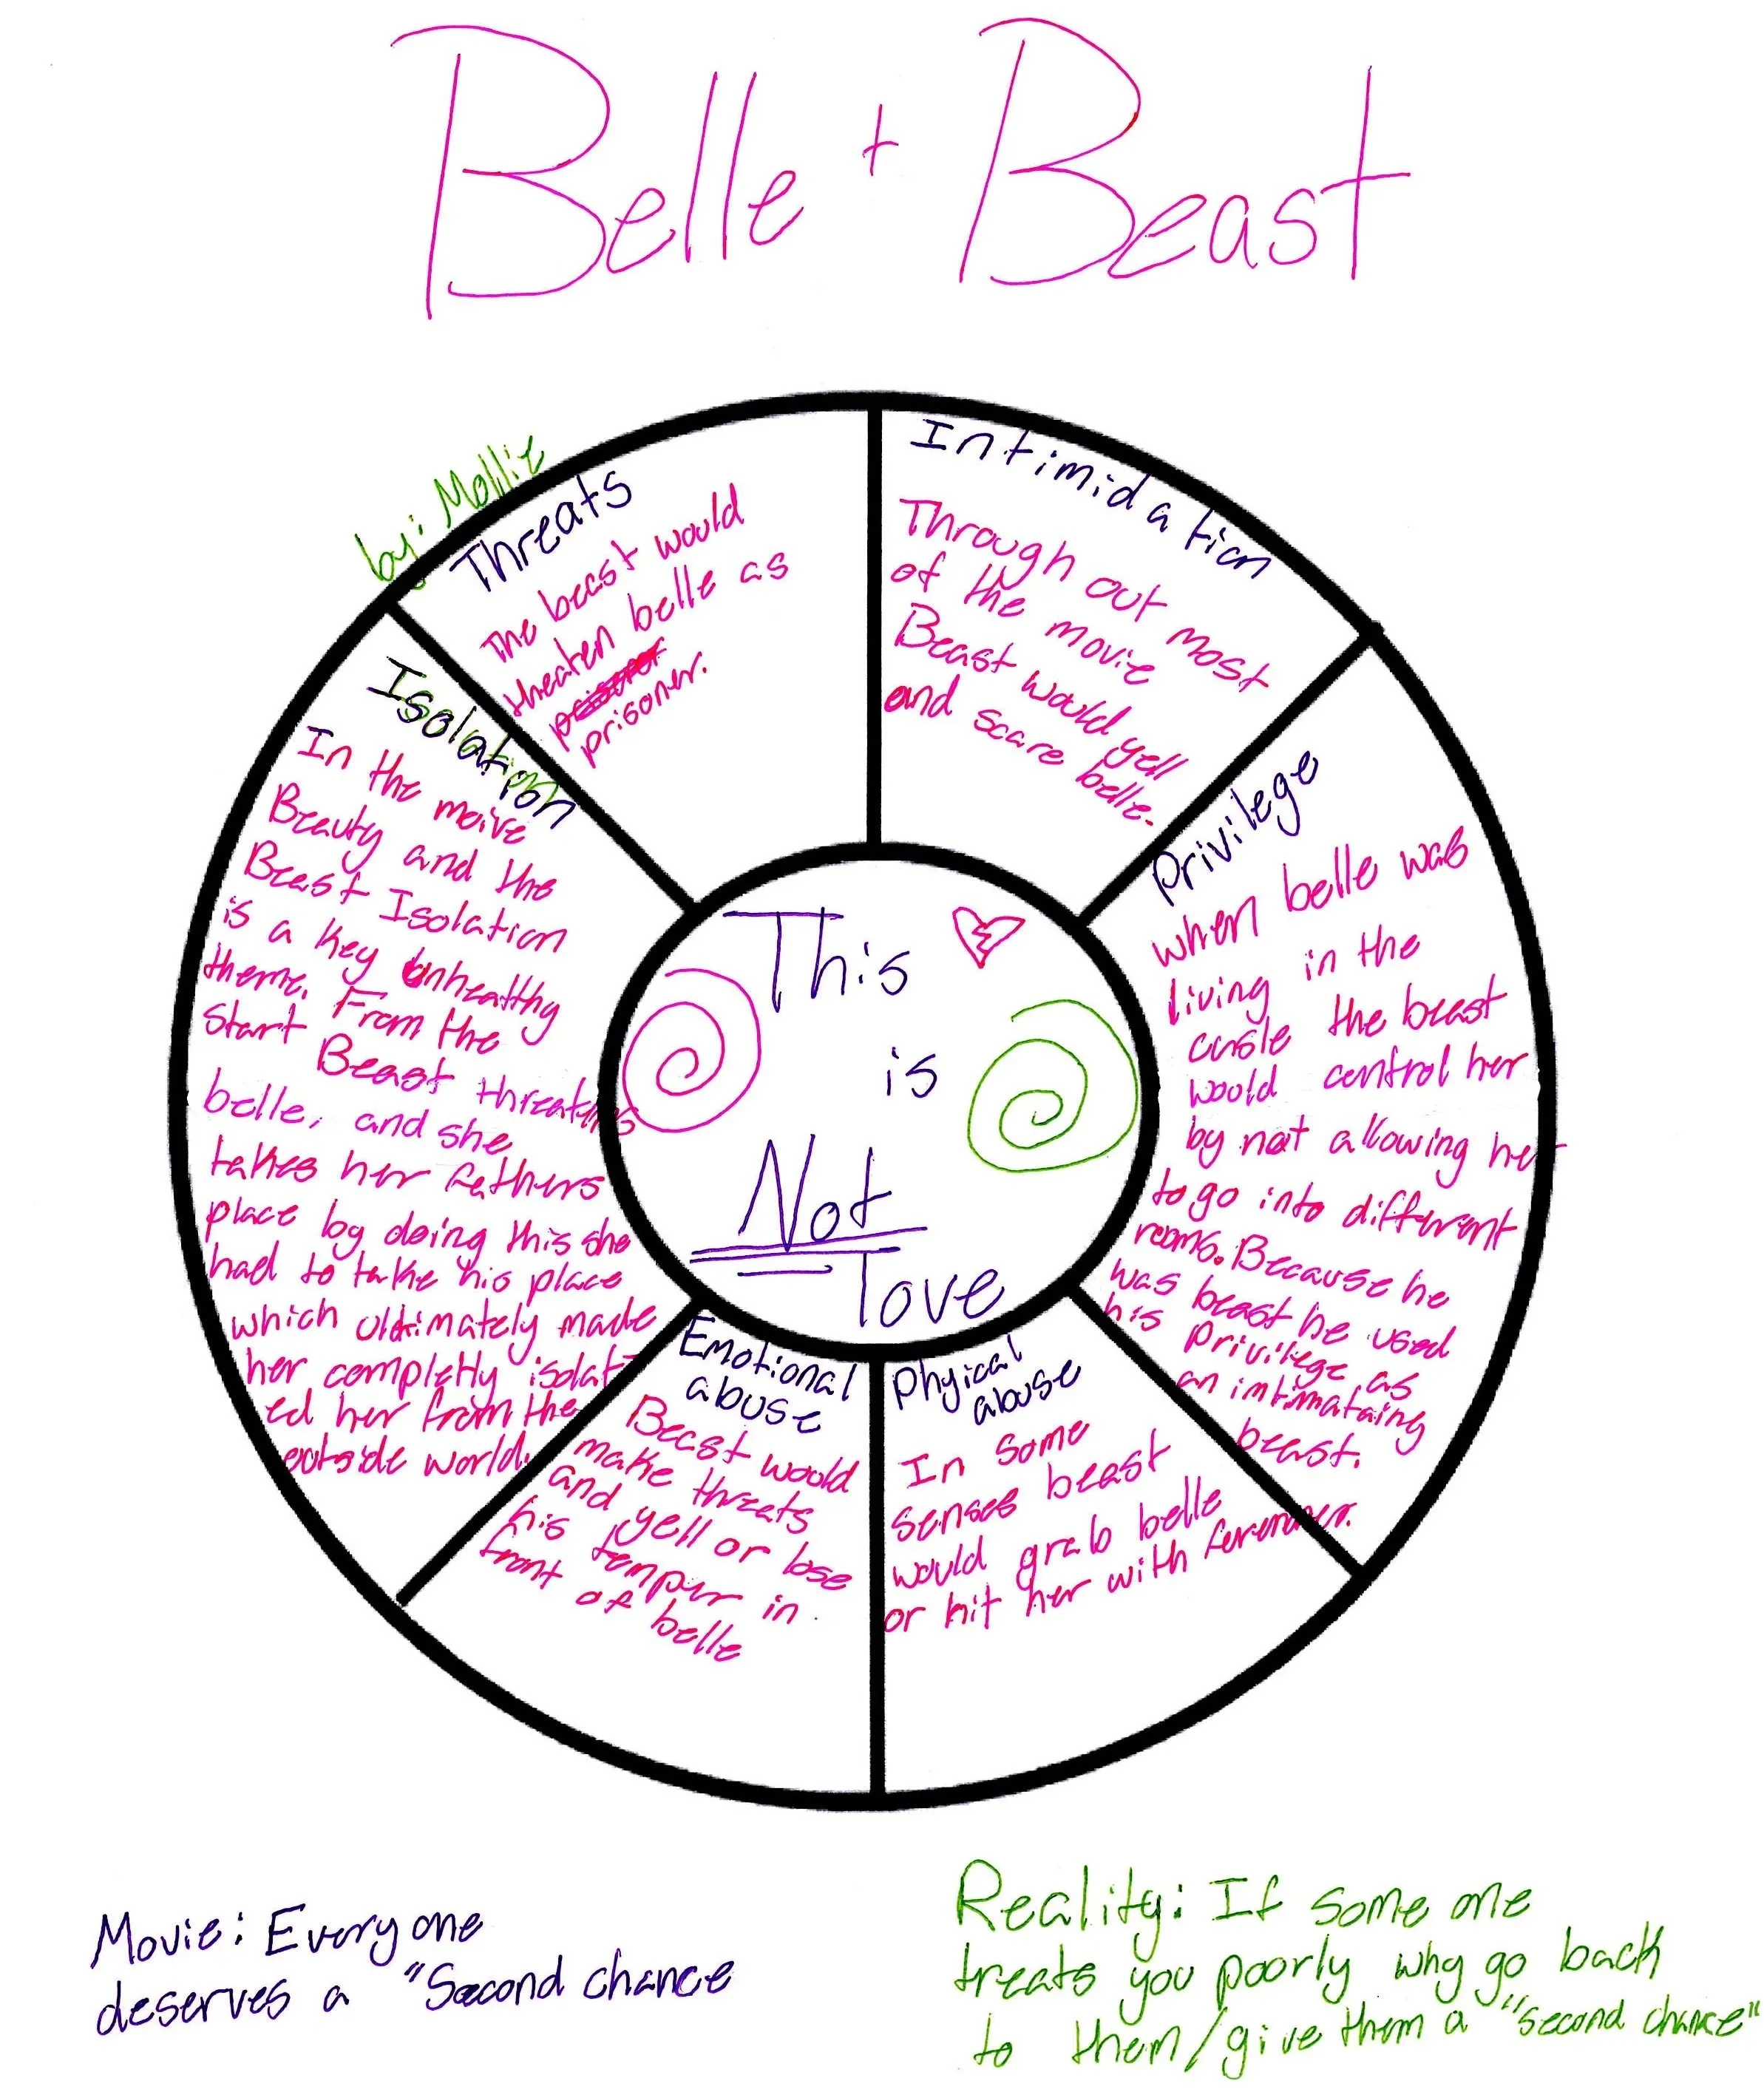 Belle + Beast
by: Mollie
Threats
The beast would
threaten belle as
prisoner.
Intimidation
Through out most
of the movie
Beast would yell
and scare belle.
Privilege
when belle was
living in the
casle the beast
would control her
by not allowing her
to go into different
rooms. Because he
was beast he used
his privilege as
an intimataing
beast.
Phyical
abuse
In some
senses beast
would grab belle
or hit her with
Emotional
abuse
Beast would
make threats
and yell or lose
his temper in
front of belle
Isolation
In the moive
Beauty and the
Beast Isolation
is a key unhealthy
theme. From the
start Beast threatens
belle, and she
takes her fathers
place by doing this she
had to take his place
which ultimately made
her completly isolat
ed her from the
outside world.
This
is
Not
love
Movie: Everyone
deserves a "Second chance
Reality: If some one
treats you poorly why go back
to them/give them a "second chance"